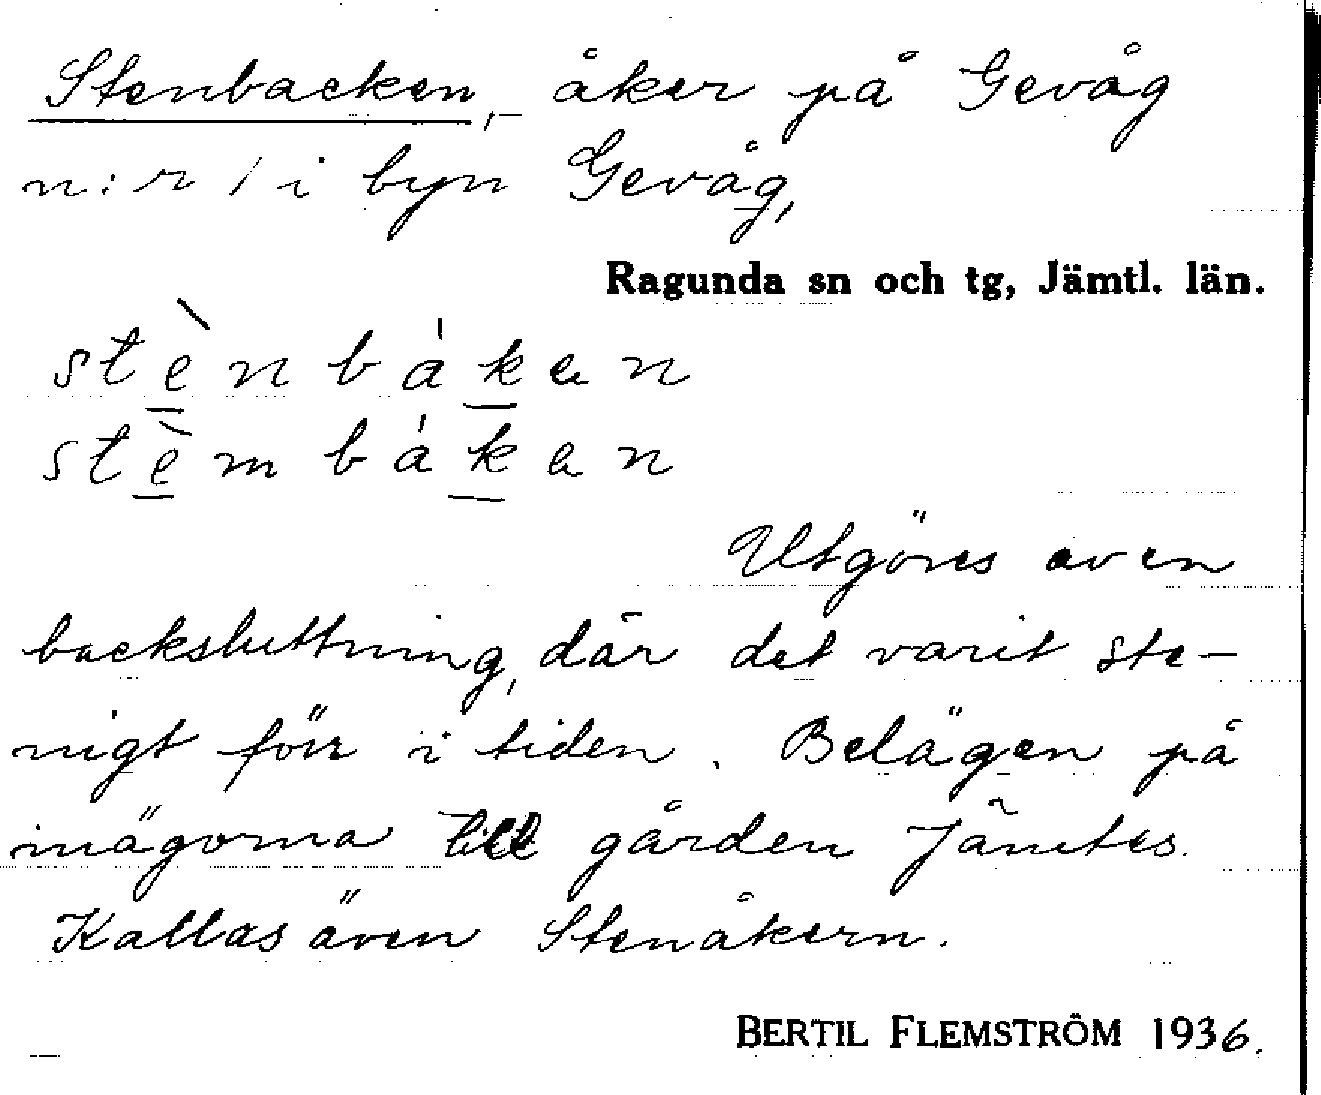 Stenbacken, åker på Gevåg
n:r 1 i byn Gevåg,
Ragunda sn och tg, Jämtl. län.
stènbákan
stèmbákan
Utgöres av en
backsluttning, där det varit ste-
nigt förr i tiden. Belägen på
inägorna till gården Jämtes.
Kallas även Stenåkern.
BERTIL FLEMSTRÖM 1936.